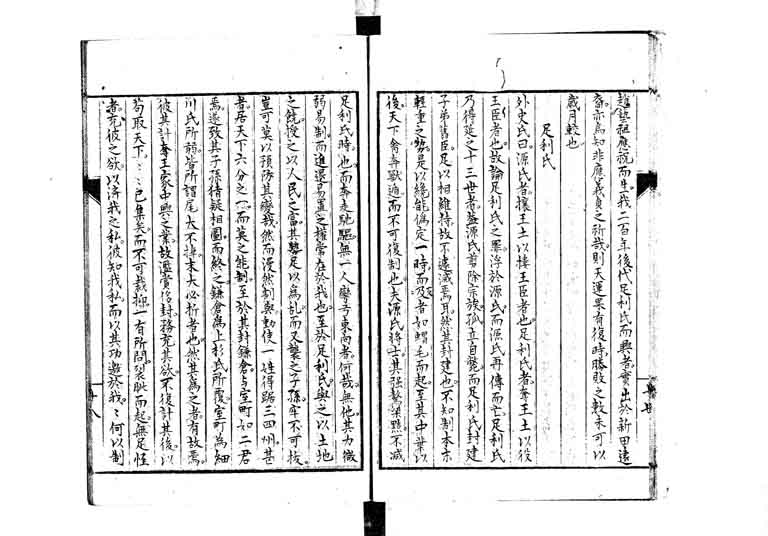 趙藝祖應祝而生我二百年後代足利氏而興者實出於新田遠
裔亦焉知非應義貞之祈哉則天運果有復時勝敗之數未可以
歲月較也
足利氏
外史氏曰源氏者攘王土以摟王臣者也足利氏者奪王土以役
王臣者也故論足利氏之罪浮於源氏而源氏再傳而亡足利氏
乃得延之十三世者蓋源氏剪除宗族孤立自斃而足利氏封建
子弟舊臣足以相維持故不遽滅焉耳然其封建也不知制本末
輕重之勢是以纔能僞定一時而反者如蝟毛而起至其中葉以
後天下禽奔獸遁而不可復制也夫源氏將士其强鷙桀黠不減
足利氏時也而奔走馳驅無一人彎弓東向者何哉無他其力微
弱易制而進退易置之權常在於我也至於足利氏與之以土地
之饒授之以人民之富其勢足以爲乱而又襲之子孫牢不可拔
豈可莫以預防其變哉然而漫然割與動使一姓得踞三四州甚
者居天下六分之一而莫之能制至於其封鎌倉与室町如二君
焉遂致其子孫猜疑相圖而終之鎌倉爲上杉氏所覆室町爲細
川氏所弱皆所謂尾大不掉末大必折者也然其爲之者有故焉
彼其計奪王家中興之業故濫賞侈封務充其欲不復計其後以
苟取天下ミミ已集矣而不可裁抑一有所問裂眦而起無足怪
者充彼之欲以濟我之私彼知我私而以其功邀於我ミ何以制